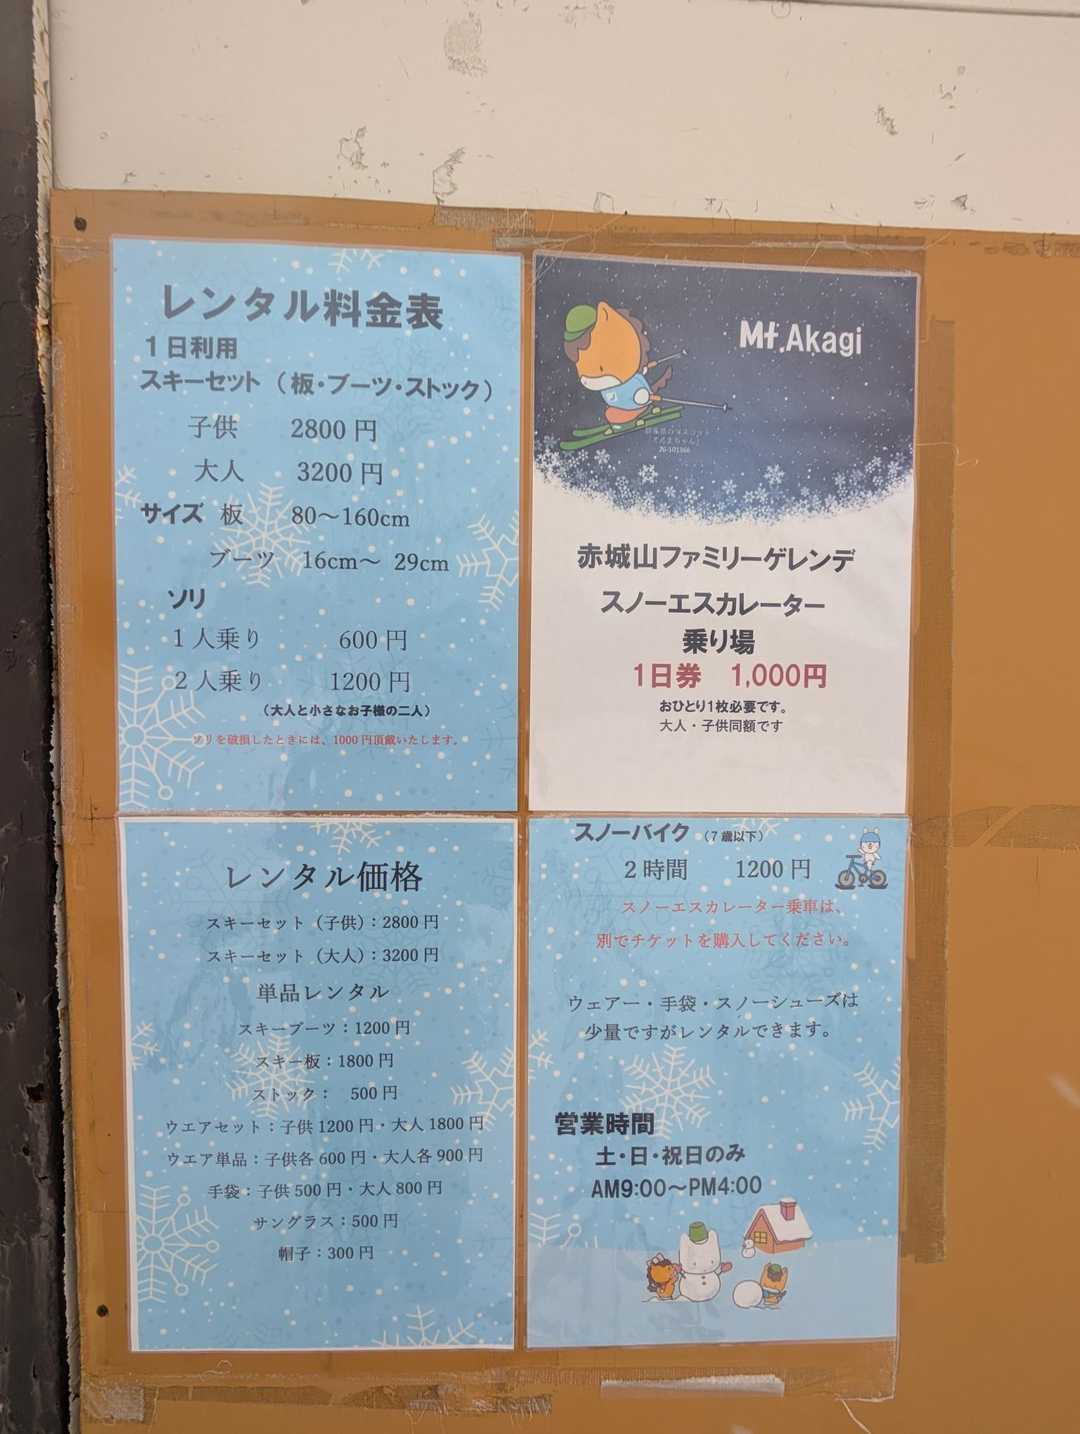 レンタル料金表
1日利用
スキーセット（板・ブーツ・ストック）
子供 2800円
大人 3200円
サイズ 板 80～160cm
ブーツ 16cm～ 29cm
ソリ
1人乗り 600円
2人乗り 1200円
（大人と小さなお子様の二人）
ソリを破損したときには、1000円頂戴いたします。
Mt.Akagi
群馬県のマスコット
「ぐんまちゃん」
赤城山ファミリーゲレンデ
スノーエスカレーター
乗り場
1日券 1,000円
おひとり1枚必要です。
大人・子供同額です
レンタル価格
スキーセット（子供）：2800円
スキーセット（大人）：3200円
単品レンタル
スキーブーツ：1200円
スキー板：1800円
ストック： 500円
ウエアセット：子供1200円・大人1800円
ウエア単品：子供各600円・大人各900円
手袋：子供500円・大人800円
サングラス：500円
帽子：300円
スノーバイク（7歳以下）
2時間 1200円
スノーエスカレーター乗車は、
別でチケットを購入してください。
ウェアー・手袋・スノーシューズは
少量ですがレンタルできます。
営業時間
土・日・祝日のみ
AM9:00～PM4:00